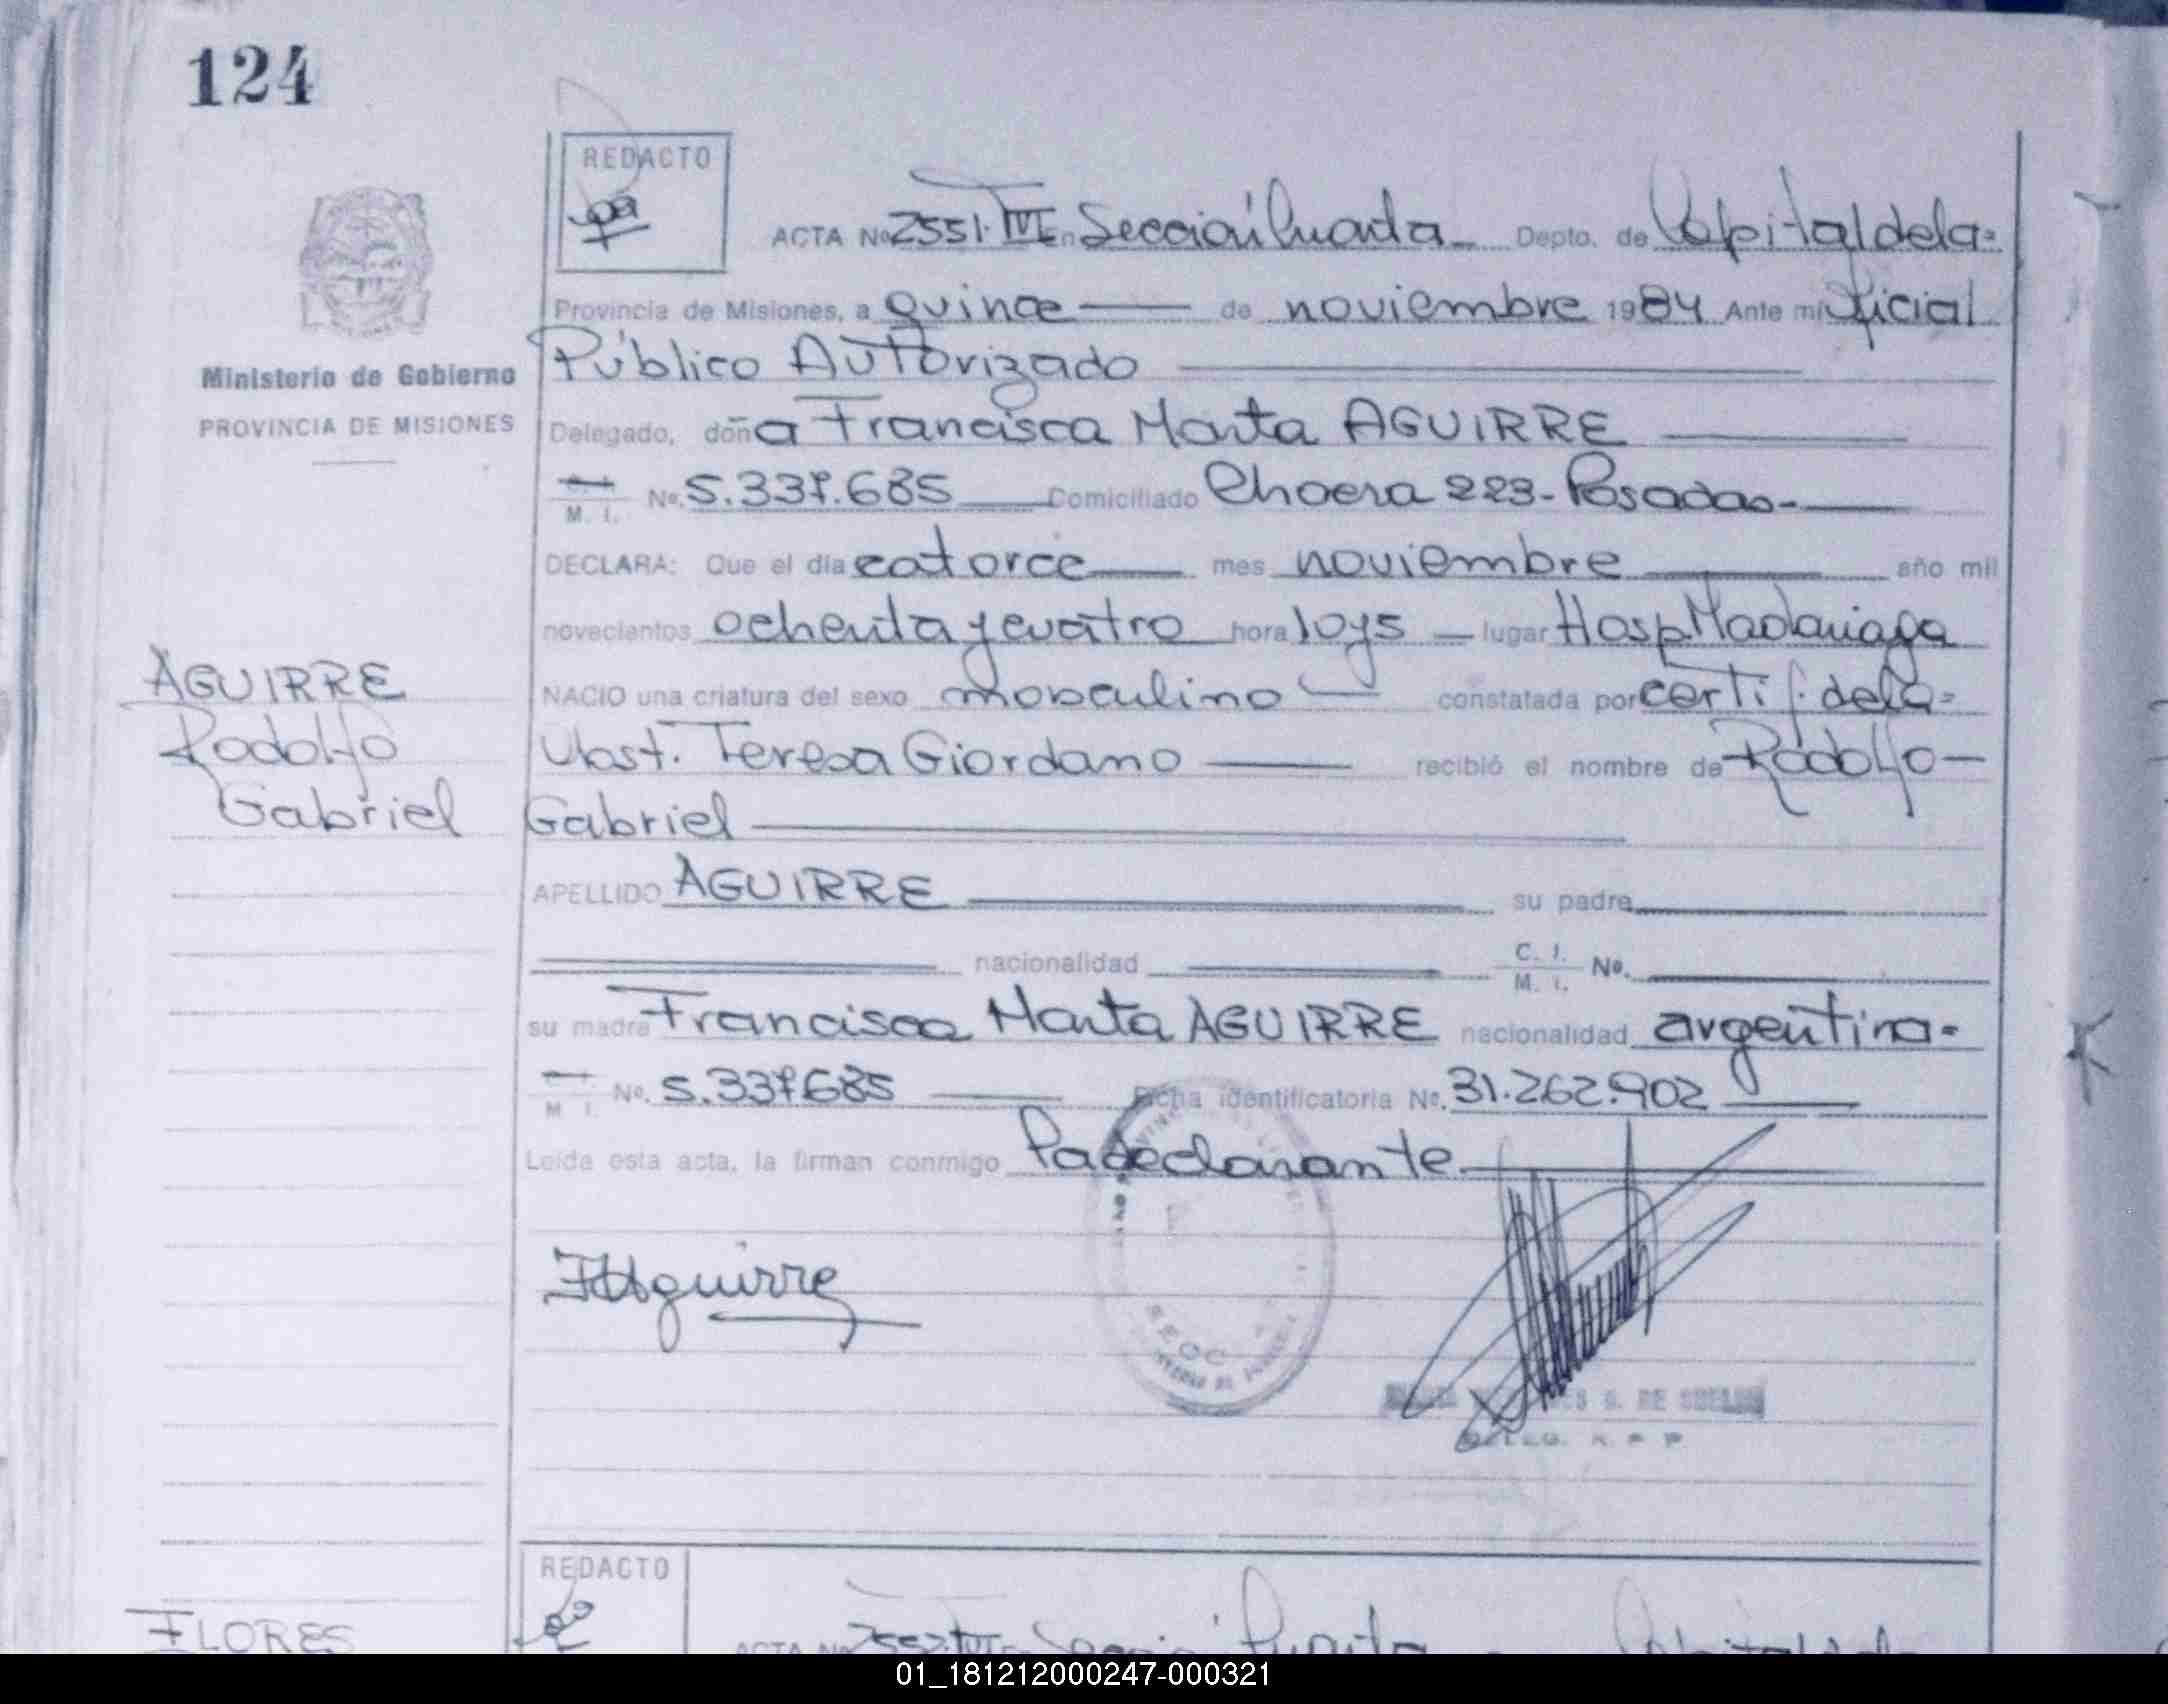 124
REDACTO
ACTA Nº 2551. T VI En Sección Cuarta Depto. de Capital de la =
Provincia de Misiones, a quince de noviembre 1984 Ante mí Oficial
Público Autorizado
Ministerio de Gobierno
PROVINCIA DE MISIONES
Delegado, doña Francisca Marta AGUIRRE
M. I. Nº. 5.337.685 Domiciliado 223 - Posadas -
DECLARA: Que el día catorce mes noviembre año mil
novecientos ochenta y cuatro hora 10 y 5 lugar Hosp Madariaga
NACIO una criatura del sexo masculino constatada por certif. de la =
Obst. Teresa Giordano recibió el nombre de Rodolfo
Gabriel
AGUIRRE
Rodolfo
Gabriel
APELLIDO AGUIRRE su padre
nacionalidad C. I. M. I. Nº.
su madre Francisca Marta AGUIRRE nacionalidad argentina =
M. I. Nº. 5.337685 Ficha identificatoria Nº. 31.262.902
Leída esta acta, la firman conmigo la declarante
FMAguirre
G. DE
REDACTO
FLORES
ACTA Nº 2552. T VI En Sección Cuarta Capital de la
01_181212000247-000321